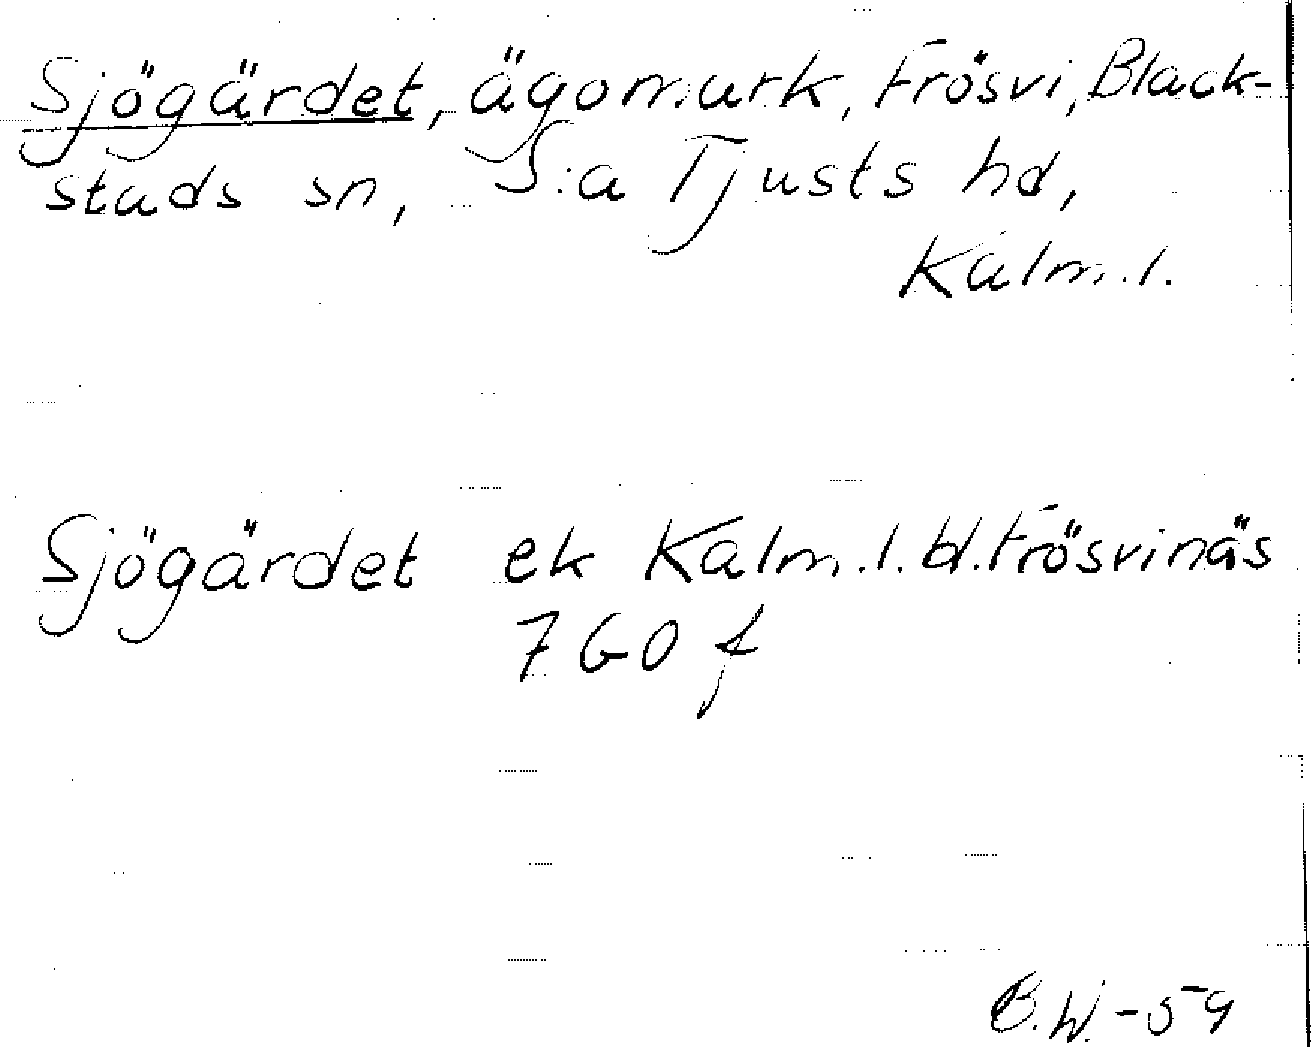 Sjögärdet, ägomark, Frösvi, Black-
stads sn, S:a Tjusts hd,
Kalm. l.
Sjögärdet ek Kalm. l. bl. Frösvinäs
7 G0 f
B.W. -59